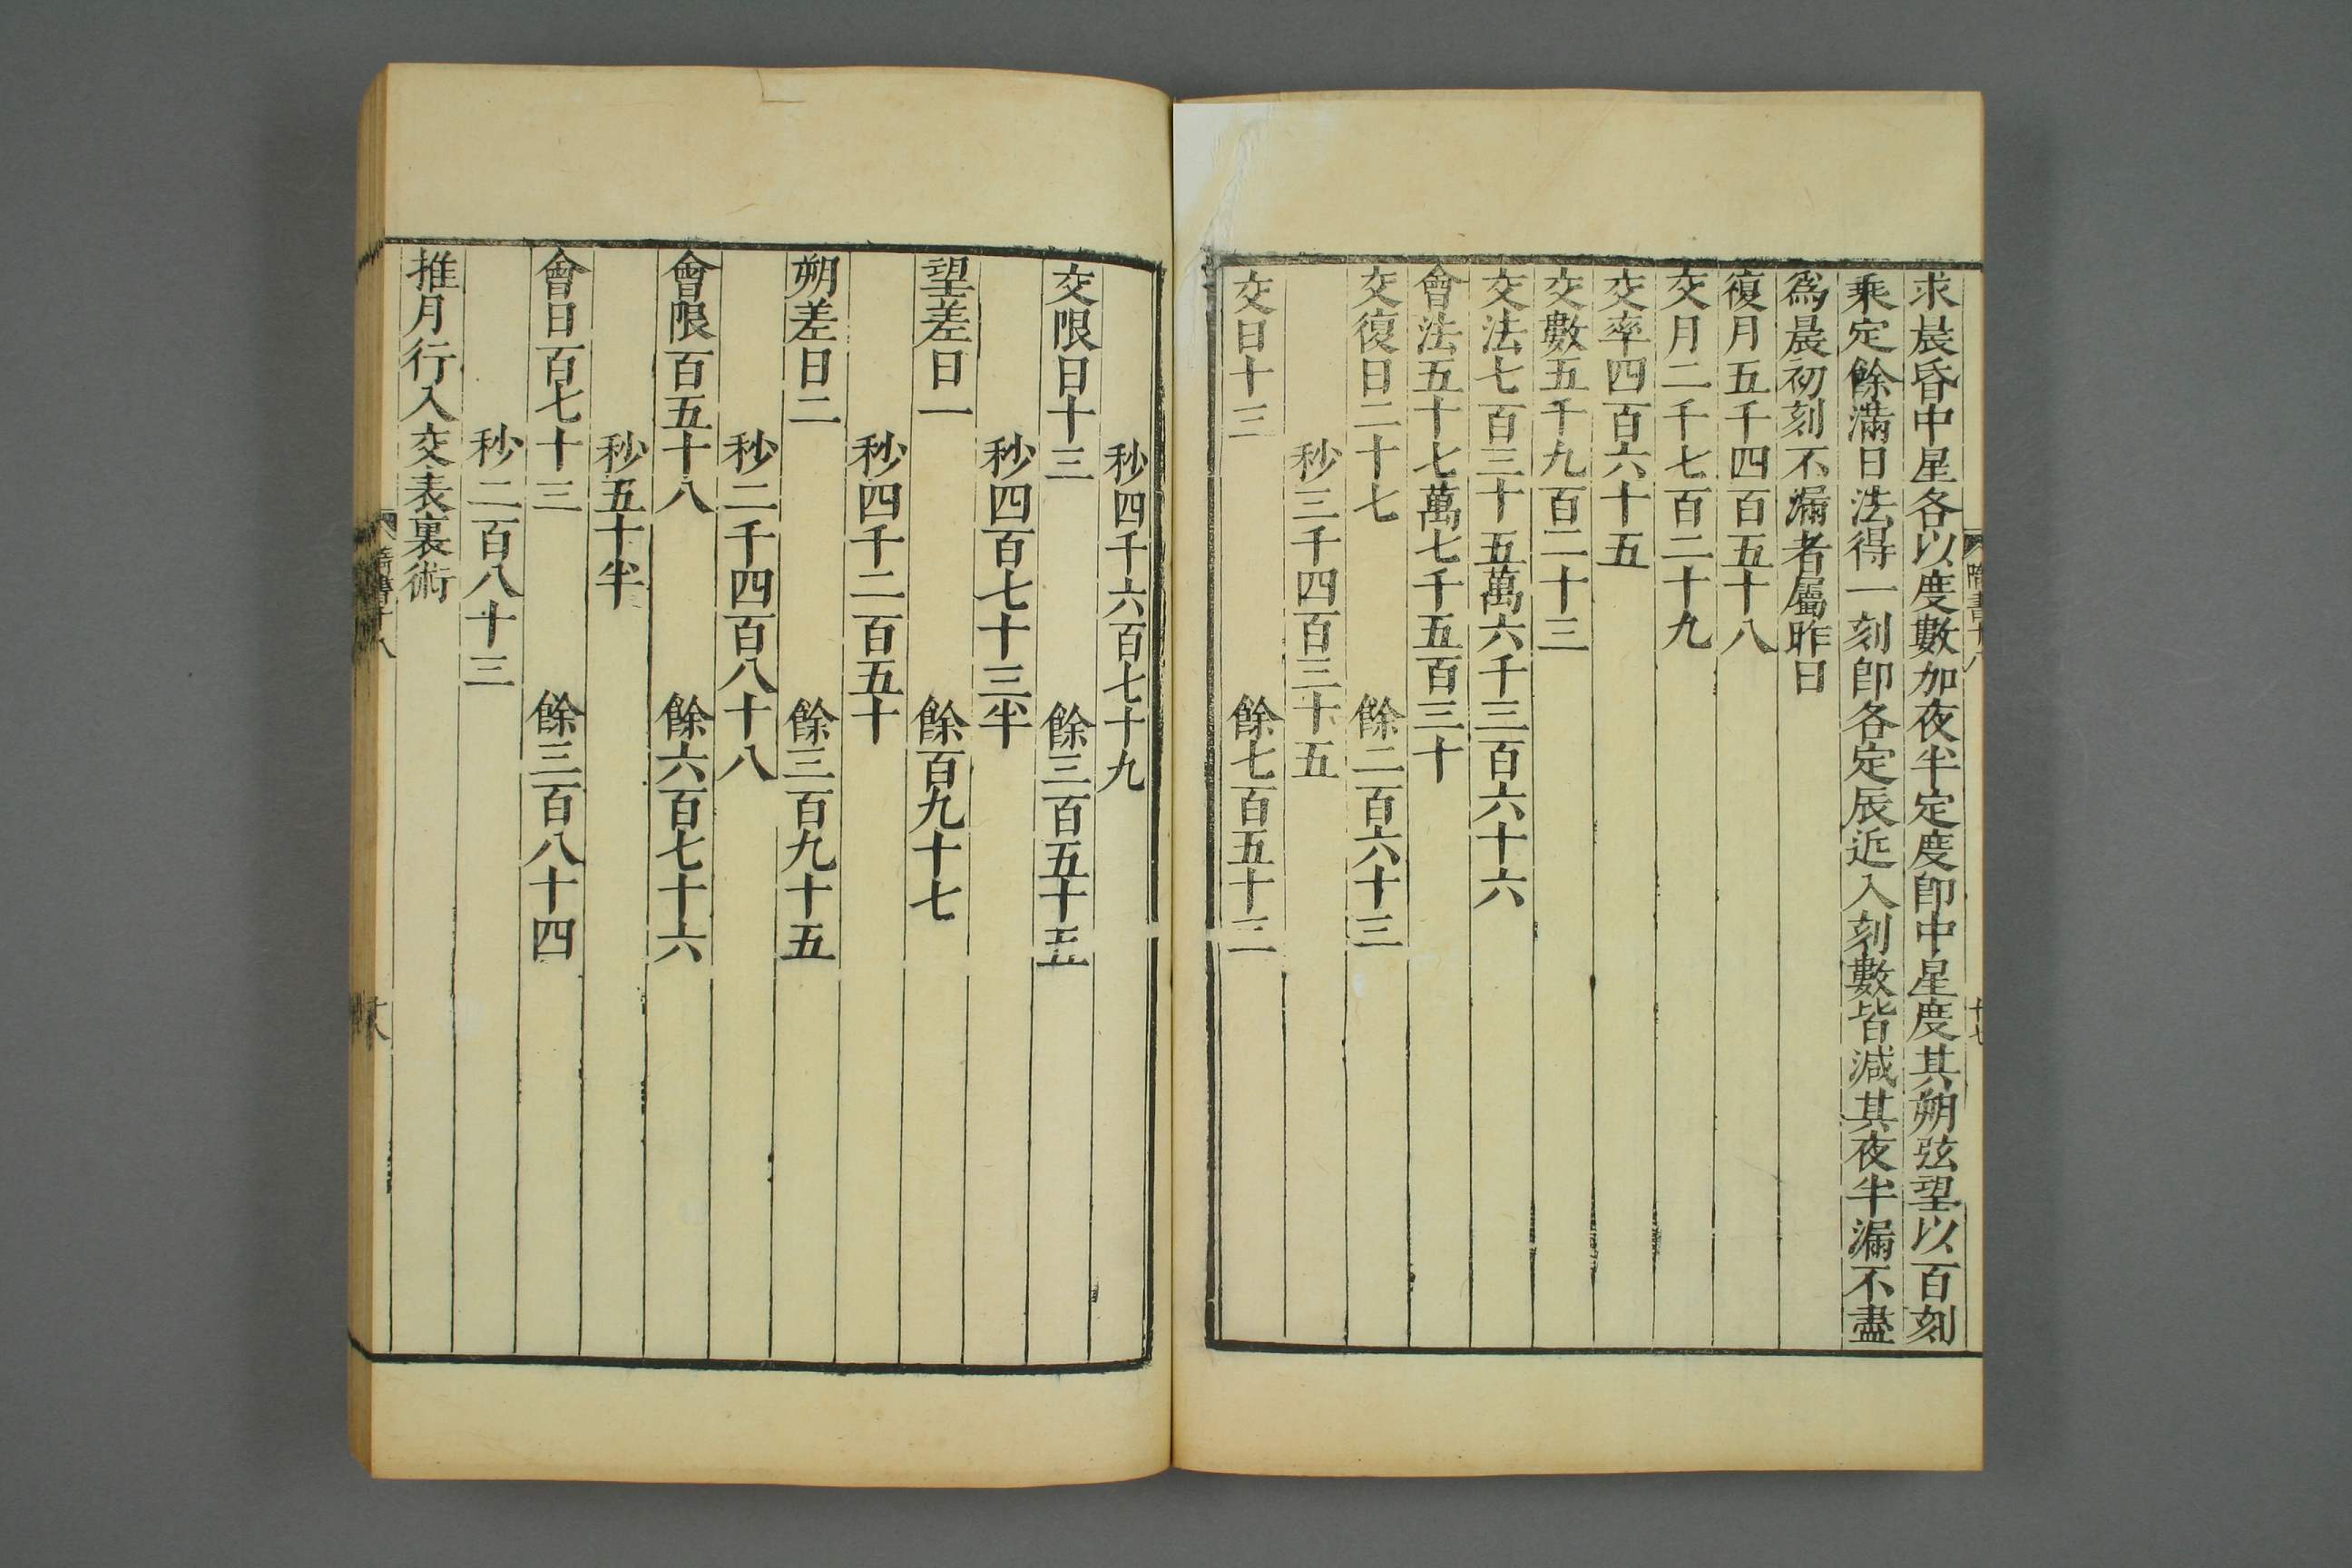 求晨昏中星各以度數加夜半定度卽中星度其朔弦望以百刻
乘定餘滿日法得一刻卽各定辰近入刻數皆減其夜半漏不盡
爲晨初刻不漏者屬昨日
復月五千四百五十八
交月二千七百二十九
交率四百六十五
交數五千九百二十三
交法七百三十五萬六千三百六十六
會法五十七萬七千五百三十
交復日二十七　餘二百六十三
秒三千四百三十五
交日十三　餘七百五十二
隋書十八　十七
秒四千六百七十九
交限日十三　餘三百五十五
秒四百七十三半
望差日一　餘百九十七
秒四千二百五十
朔差日二　餘三百九十五
秒二千四百八十八
會限百五十八　餘六百七十六
秒五十半
會日百七十三　餘三百八十四
秒二百八十三
推月行入交表裏術
隋書十八　十八